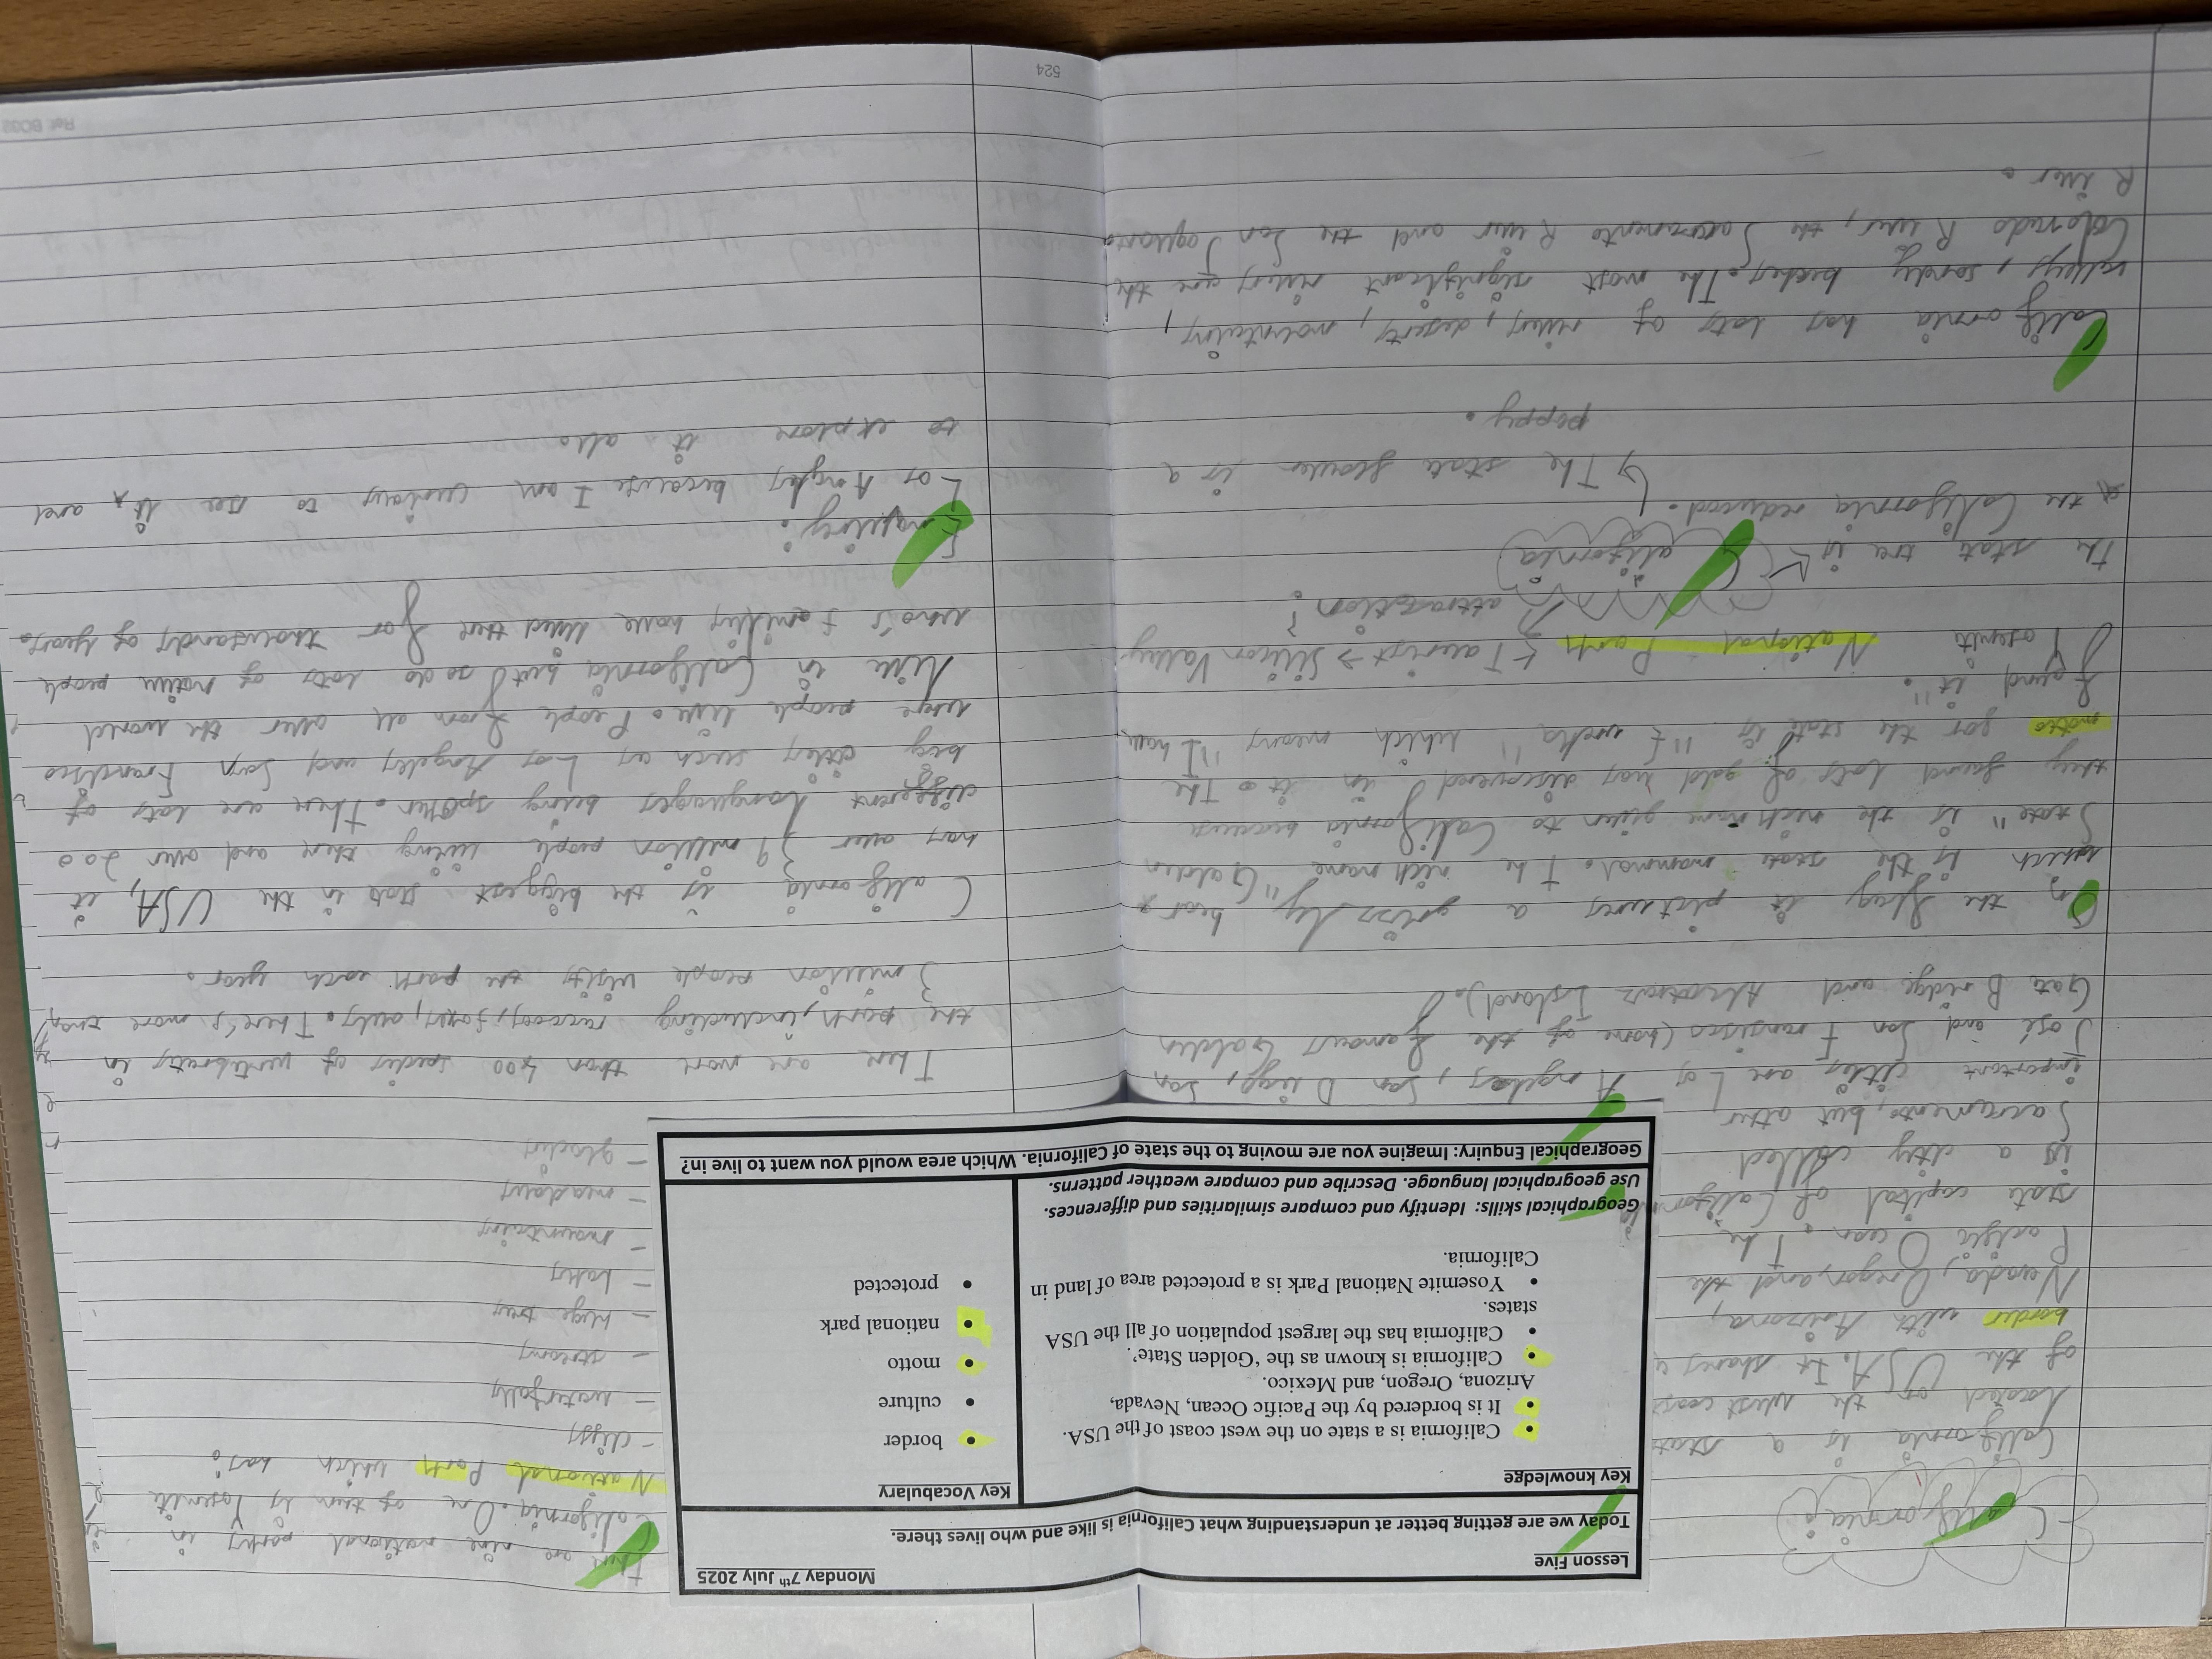 California:
California is a state
located on the west coast
of the USA. It shares a
border with Arizona,
Nevada, Oregon, and the
Pacific Ocean. The
state capital of California
is a city called
Sacramento, but other
important cities are Los Angles, San Diego, San
José and San Fransisco (home of the famous Golden
Gate Bridge and Alcatraz Island).
On the flag it pictures a grizzly bear
which is the state mammal. The nickname "Golden
State" is the nickname given to California because
they found lots of gold was discovered in it. The
motto for the state is "Eureka" which means "I have
found it".
Yosemite National Park ← Tourist → Silicon Valley
attraction?
California
The state tree is
the California redwood.
↳ The state flower is a
poppy.
California has lots of rivers, deserts, mountains,
valleys, sandy beaches. The most significant rivers are the
Colorado River, the Sacramento River and the San Joaquin
River.
Lesson Five
Monday 7th July 2025
Today we are getting better at understanding what California is like and who lives there.
Key knowledge
• California is a state on the west coast of the USA.
• It is bordered by the Pacific Ocean, Nevada,
Arizona, Oregon, and Mexico.
• California is known as the ‘Golden State’.
• California has the largest population of all the USA
states.
• Yosemite National Park is a protected area of land in
California.
Key Vocabulary
• border
• culture
• motto
• national park
• protected
Geographical skills: Identify and compare similarities and differences.
Use geographical language. Describe and compare weather patterns.
Geographical Enquiry: Imagine you are moving to the state of California. Which area would you want to live in?
There are nine national parks in
California. One of them is Yosemite
National Park which has:
- cliffs
- waterfalls
- streams
- huge trees
- lakes
- mountains
- meadows
- glaciers
There are more than 400 species of vertebrates in
the park, including racoons, foxes, owls. There's more than
3 million people visits the park each year.
California is the biggest state in the USA, it
has over 39 million people living there and over 200
different languages being spoken. There are lots of
big cities such as Los Angeles and San Francisco
were people live. People from all over the world
live in California but so do lots of native people
who's families have lived there for thousands of years.
Enquiry:
Los Angles because I am curious to see it, and
to explore it all.
524
Ref: BC02